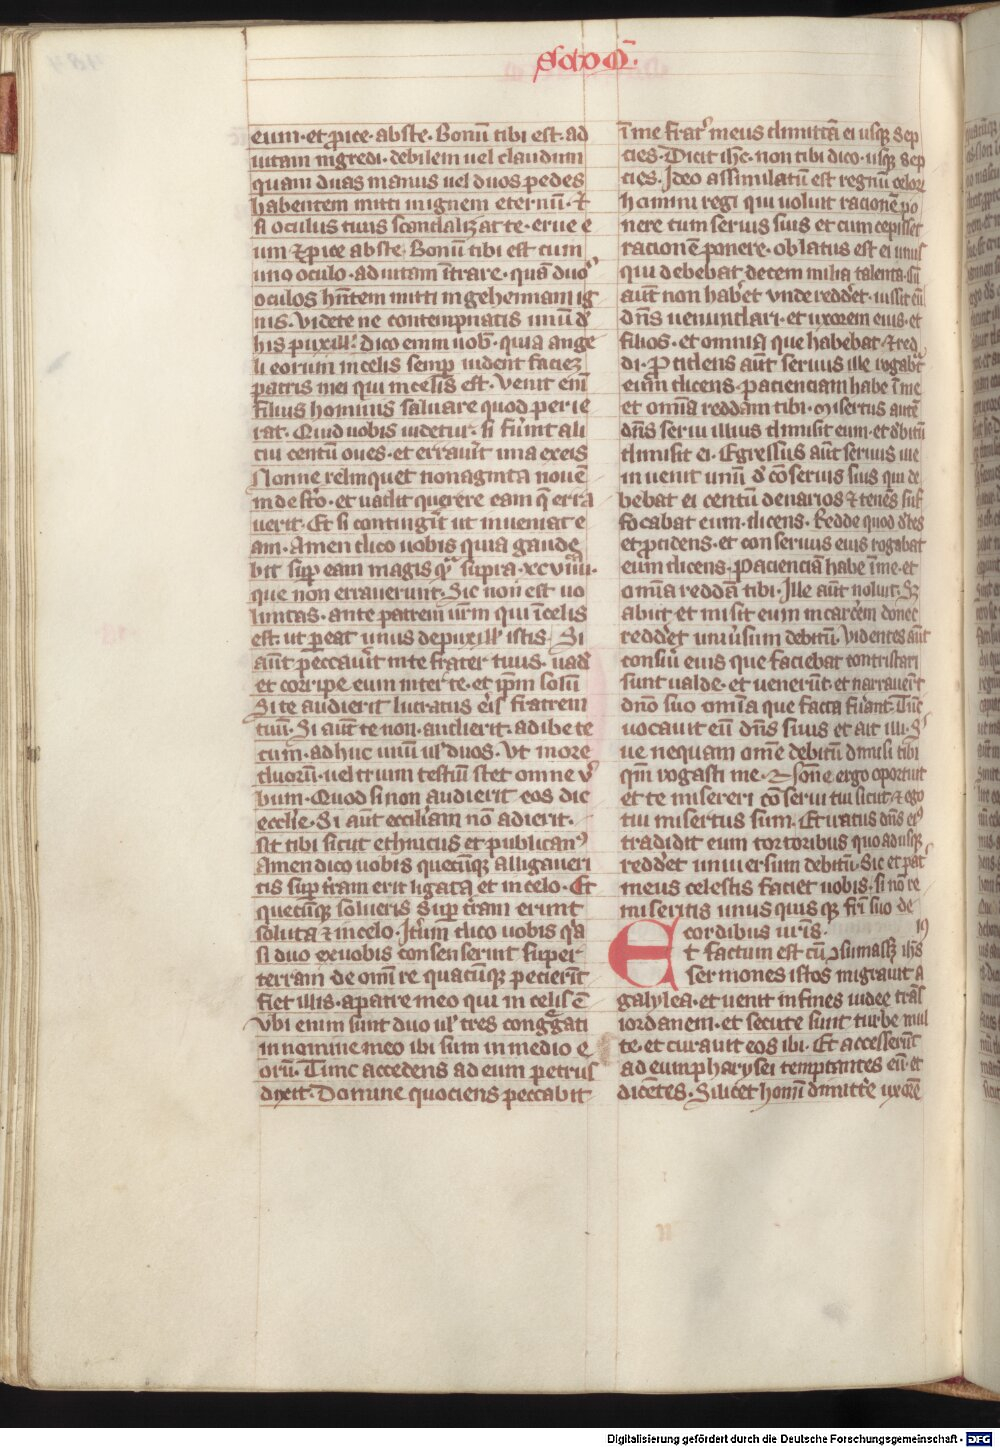 eum · et ꝓice · abs te · Bonū tibi est · ad
uitam ingredi · debilem uel claudum
quam duas manus uel duos pedes
habentem mitti in ignem eternū · Et
si oculus tuus scandalizat te · erue e
um et ꝓice abs te · Bonū tibi est cum
uno oculo · ad uitam ītrare · quā duos
oculos hn̄tem mitti in gehennam ig
nis · Videte ne contempnatis unū d̓
his puxill̓ · dico enim uob̓ · quia ange
li eorum in celis semp̱ uident faciez
patris mei qui in celis est · Venit enī
filius hominis saluare quod perie
rat · Quid uobis uidetur · si fu̓int ali
cui centū oues · et errau̓it una ex eis
Nonne relinquet nonaginta nouē
in deserto · et uadit querere eam q̄ erra
uerit · Et si contingit̓ ut inueniat e
am · Amen dico uobis quia gaude
bit sup̱ eam magis qͣ supra · xcviiii ·
que non errauerunt · Sic non est uo
luntas · ante patrem ur̄m qui ī celis
est · ut p̱eat unus de puxill̓ istis · Si
aūt peccau̓it in te frater tuus · uad̓
et corripe eum inter te · et ip̄m solū
Si te audierit lucratus eris fratrem
tuū · Si aūt te non · audierit · adibe te
cum · adhuc unū ul̓ duos · Vt in ore
duorū · uel trium testiū stet omne v̓
bum · Quod si non audierit eos dic
eccl̓ie · Si aūt eccl̓iam nō adierit ·
sit tibi sicut ethnicus et publicanꝰ
Amen dico uobis quecūqꝫ alligaueri
tis sup̱ t̓ram erit ligata et in celo · Et
quecūqꝫ solueris sup̱ t̓ram erunt
soluta et in celo · It̓um dico uobis qͥa
si duo ex uobis consenserint super
terram · de omī re quacūqꝫ pecierīt
fiet illis · a patre meo qui in celis ē
Vbi enim sunt duo ul̓ tres congͤgati
in nomine meo ibi sum in medio e
orū · Tunc accedens ad eum petrus
dixit · Domine quociens peccabit
ī me frat̓ meus dimittā ei usqꝫ sep
cies · Dicit ih̄c · non tibi dico · usqꝫ sep
cies · Ideo assimilatū est regnū celorꝝ
homini regi qui uoluit racionē po
nere cum seruis suis et cum cepisset
racionē ponere · oblatus est ei unus
qui debebat decem milia talenta · cū
aūt non hab̓et vnde redd̓et · iussit eū
dn̄s uenundari · et uxorem eius · et
filios · et omnia que habebat · et red
di · Procidens aūt seruus ille rogabͣt
eum dicens · pacienciam habe ī me
et omīa reddam tibi · misertus autē
dn̄s serui illius dimisit eum · et d̓bitū
dimisit ei · Egressus aūt seruus ille
inuenit unū d̓ cōseruis suis qui de
bebat ei centū denarios et tenēs suf
focabat eum · dicens · Redde quod d̓bes
et ꝓcidens · et conseruus eius rogabat
eum dicens · pacienciā habe ī me · et
omīa reddā tibi · Ille aūt noluit · Sꝫ
abiit et misit eum in carc̓em donec
redd̓et uniu̓sum debitū · Videntes aūt
conserui eius que faciebat contristari
sunt ualde · et uenerūt · et narrauer̄t
dn̄o suo omīa que facta fu̓ant · Tūc
uocauit eū dn̄s suus et ait illi · S̓
ue nequam om̄e debitū dimisi tibi
qm̄ rogasti me · Nōne ergo oportuit
et te misereri cōserui tui sicut · et ego
tui misertus sum · Et iratus dn̄s eiꝰ
tradidit eum tortoribus quoadusqꝫ
redd̓et uniuersum debitū · Sic et pat̓
meus celestis faciet uobis · si nō re
miseritis unus quisqꝫ fr̄i suo de
cordibus ur̄is · 19
Et factum est cū ↄsumasꝫ ih̄s
sermones istos migrauit a
galylea · et uenit in fines iudee trās
iordanem · et secute sunt turbe mul
te · et curauit eos ibi · Et accesserūt
ad eum pharysei temptantes eū · et
dicētes · Si licet homī dimitt̓e uxorē
Digitalisierung gefördert durch die Deutsche Forschungsgemeinschaft - DFG